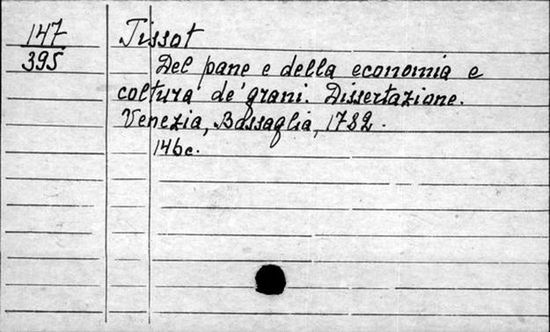 147
395
Tissot
Del pane e della economia e
coltura de' grani. Dissertazione.
Venezia, Bassaglia, 1782.
146c.